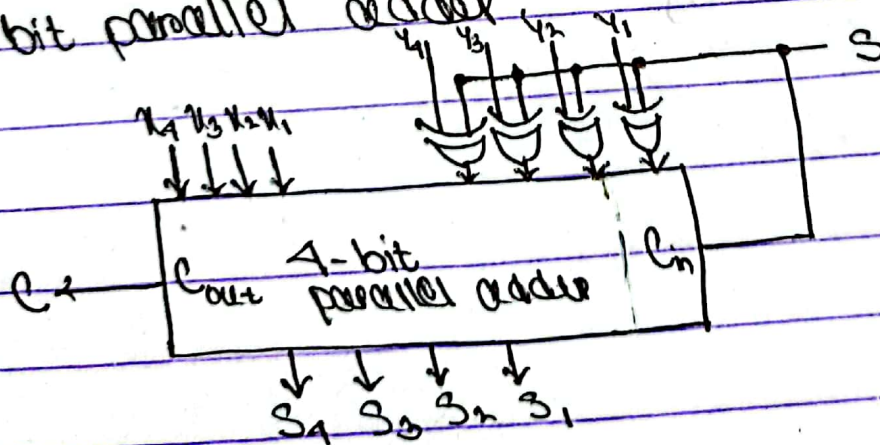 bit parallel adder
Y4 Y3 Y2 Y1
S
x4 x3 x2 x1
C Cout 4-bit Cin
parallel adder
S4 S3 S2 S1